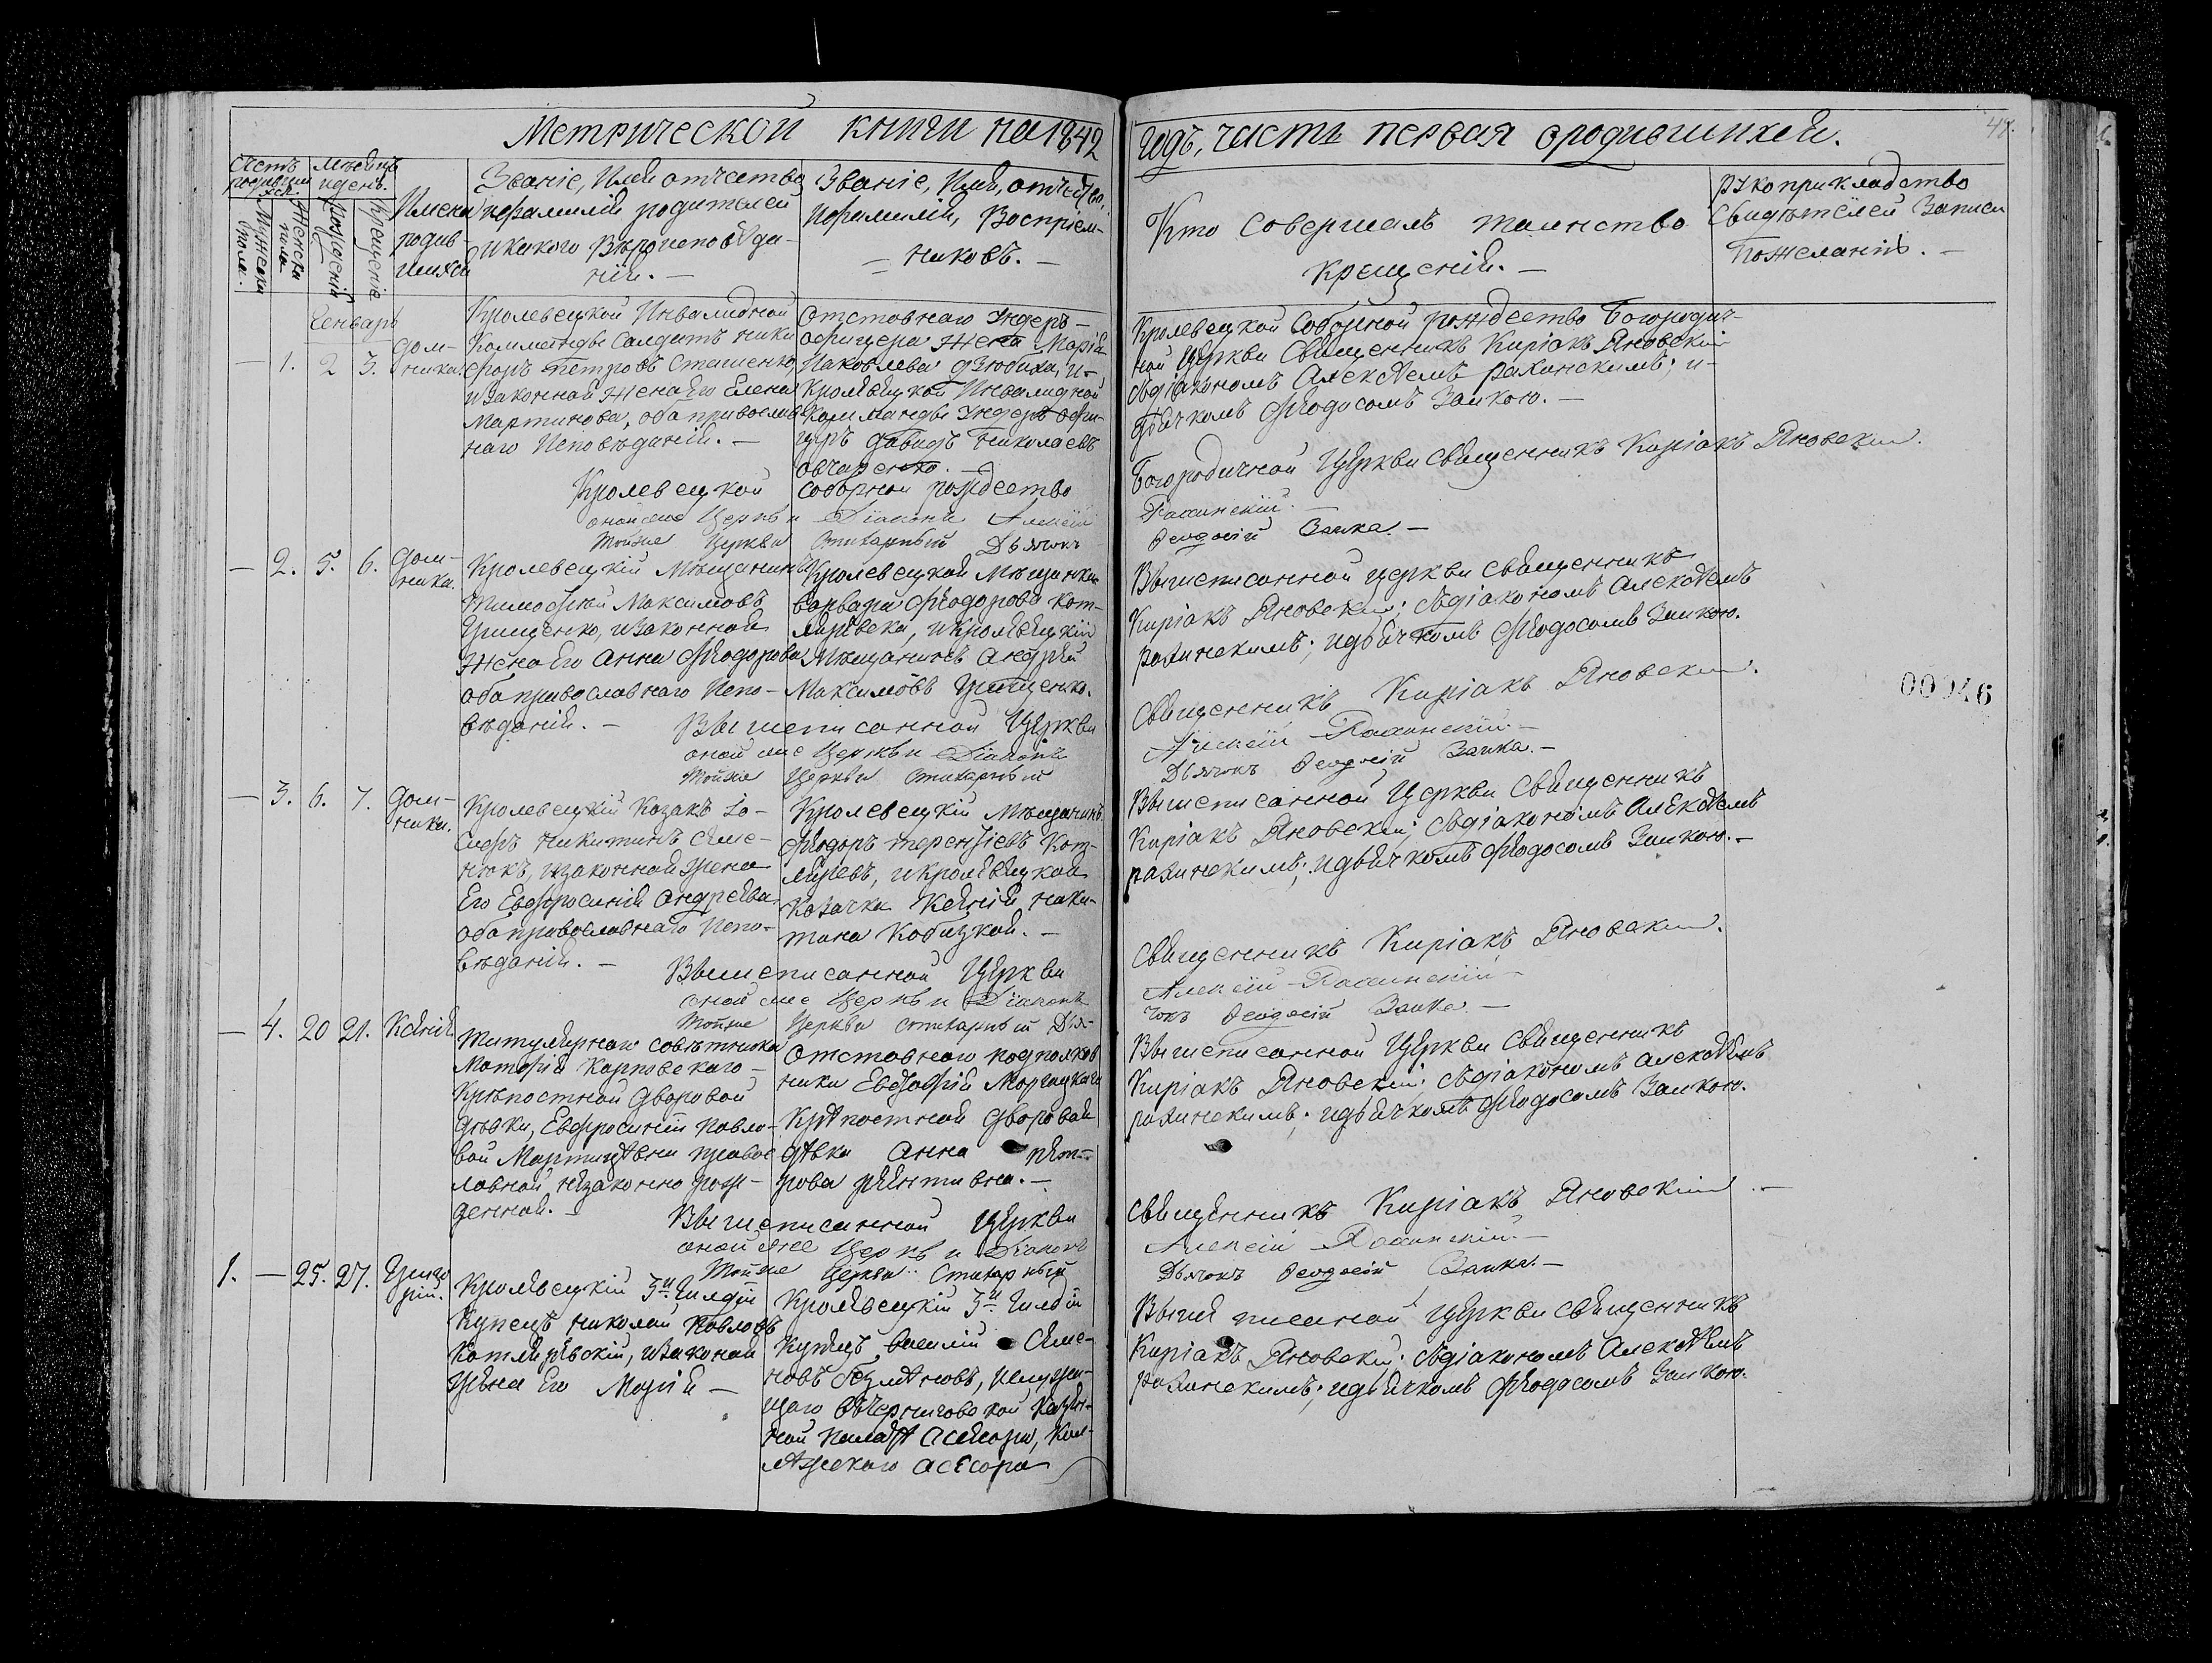 Метрической книги на 1842
годъ, часть первая о родившихся.
Счетъ родившихся.
Мѣсяцъ и день.
Мужеска пола.
Женска пола
Рожденія
Крещеніе
Имена
родив
шихся
Званіе, Имя отчество
и фамилія родителей
и какого Вѣроисповѣда-
нія. —
Званіе, Имя, отчество,
и фамилія, Воспріем-
никовъ. —
Кто совершалъ таинство
крещенія. —
Рукоприкладство
Свидѣтелей Записи
По желанію. —
Генварь
— 1. 2 3. Дом-
ника.
Кролевецкой Инвалидной
Комманды Салдатъ Ники
форъ Петровъ Сташенко
и законная Жена Его Елена
Мартинова, оба православ
наго Исповѣданія. —
Отставнаго Ундеръ-
офицера Жена Марія
Яковлева Дзюбиха, и
Кролевецкой Инвалидной
Комманды Ундеръ офи-
церъ Давидъ Николаевъ
Овчаренко. —
Кролевецкой Соборной рождество Богородич-
ной Церкви Священникъ Киріакъ Яновскій
съ діакономъ Алексѣемъ Рахинскимъ; и-
дьячкомъ Феодосомъ Заикою. —
Кролевецкой соборной рождество Богородичной Церкви Священникъ Киріакъ Яновский.
оной же Церкви Діаконъ Алексій Рахинскій. —
Тойже Церкви Стихарный Дьячокъ Феодосій Заика. —
— 2. 5. 6. Дом-
ника.
Кролевецкій Мѣщанинъ
Тимофей Максимовъ
Грищенко, и законная
Жена Его Анна Феодорова
оба православнаго Испо-
вѣданія. —
Кролевецкой Мѣщанки
Варвара Феодорова Кот-
ляревска, и Кролевецкій
Мѣщанинъ Андрей
Максимовъ Грищенко.
Вышеписанной церкви священникъ
Киріакъ Яновский; съ діакономъ Алексѣемъ
Рахинскимъ; и дьячкомъ Феодосомъ Заикою.
Вышеписанной Церкви Священникъ Киріакъ Яновский.
оной же Церкви Діаконъ Алексій Рахинскій —
Тойже Церкви Стихарный Дьячокъ Феодосій Заика. —
— 3. 6. 7. Дом-
ника.
Кролевецкій Козакъ Іо-
сифъ Никитинъ Семе-
нюкъ, и законная Жена
Его Евфросинія Андреева
оба православнаго Испо-
вѣданія. —
Кролевецкій Мѣщанинъ
Феодоръ Терентіевъ Кот-
ляревъ, и Кролевецкой
Козачки Ксенія Ники-
тина Кобизкой. —
Вышеписанной Церкви Священникъ
Киріакъ Яновский; съ діакономъ Алексѣемъ
Рахинскимъ; и дьячкомъ Феодосомъ Заикою. —
Вышеписанной Церкви Священникъ Киріакъ Яновский.
оной же Церкви Діаконъ Алексій Рахинскій —
Тойже Церкви Стихарный Дьячокъ Феодосій Заика. —
— 4. 20 21. Ксенія
Титулярнаго совѣтника
Матфія Карповскаго
Крѣпостной Дворовой
дѣвки, Евфросиніи Павло-
вой Мартицѣвни правос
лавной незаконно рож-
денной. —
Отставнаго подполков
ника
Крѣпостной Дворовой
дѣвка Анна Пет-
рова —
Вышеписанной Церкви Священникъ
Киріакъ Яновский; съ діакономъ Алексѣемъ
Рахинскимъ; и дьячкомъ Феодосомъ Заикою.
Вышеписанной Церкви Священникъ Киріакъ Яновский —
оной же Церкви Діаконъ Алексій Рахинскій —
Тойже Церкви Стихарный Дьячокъ Феодосій Заика. —
1. — 25. 27. Григо
рій.
Кролевецкій 3й Гилдіи
Купецъ Николай Павловъ
Котляревскій, и законая
Жена Его Марія —
Кролевецкій 3й Гилдіи
Купецъ Василій Семе-
новъ
щаго въ Черниговской Казен-
ной палатѣ Асесора, Кол-
лѣжскаго асесора
Вышеписаной Церкви Священникъ
Киріакъ Яновский; съ діакономъ Алексѣемъ
Рахинскимъ; и дьячкомъ Феодосомъ Заикою.
00046